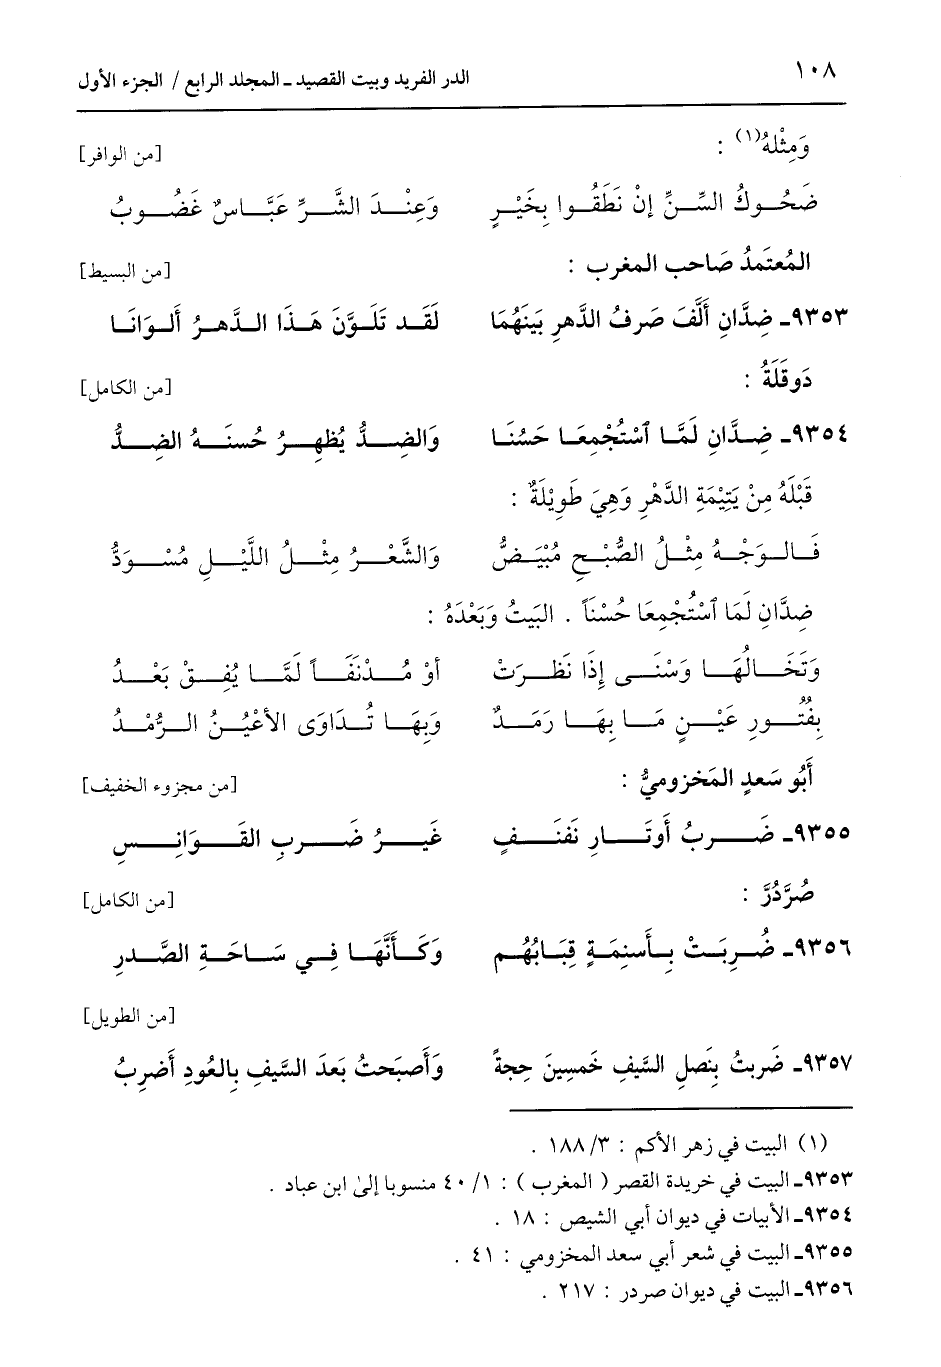 ١٠٨ الدر الفريد وبيت القصيد ـ المجلد الرابع / الجزء الأول
وَمِثْلهُ(١) : [من الوافر]
ضَحُوكُ السِّنِّ إنْ نَطَقُوا بِخَيْرٍ وَعِنْدَ الشَّرِّ عَبَّاسٌ غَضُوبُ
المُعتَمدُ صَاحب المغرب : [من البسيط]
٩٣٥٣ـ ضِدَّانِ أَلَّفَ صَرفُ الدَّهرِ بَينَهُمَا لَقَد تَلَوَّنَ هَذَا الدَّهرُ أَلوَانَا
دَوقَلَةُ : [من الكامل]
٩٣٥٤ـ ضِدَّانِ لَمَّا ٱسْتُجْمِعَا حَسُنَا وَالضِدُّ يُظهِرُ حُسنَهُ الضِدُّ
قَبْلَهُ مِنْ يَتِيْمَةِ الدَّهْرِ وَهِيَ طَوِيْلَةٌ :
فَالوَجْهُ مِثْلُ الصُّبْحِ مُبْيَضٌّ وَالشَّعْرُ مِثْلُ اللَّيْلِ مُسْوَدُّ
ضِدَّانِ لَمَا ٱسْتُجْمِعَا حُسْنَاً . البَيتُ وَبَعْدَهُ :
وَتَخَالُهَا وَسْنَى إِذَا نَظَرَتْ أوْ مُدْنَفَاً لَمَّا يُفِقْ بَعْدُ
بِفُتُورِ عَيْنٍ مَا بِهَا رَمَدٌ وَبِهَا تُدَاوَى الأعْيُنُ الرُّمْدُ
أَبُو سَعدٍ المَخزوميُّ : [من مجزوء الخفيف]
٩٣٥٥ـ ضَربُ أَوتَارِ نَفنَفٍ غَيرُ ضَربِ القَوَانِسِ
صُرَّدُرَّ : [من الكامل]
٩٣٥٦ـ ضُرِبَتْ بِأَسنِمَةٍ قِبَابُهُم وَكَأَنَّهَا فِي سَاحَةِ الصَّدرِ
[من الطويل]
٩٣٥٧ـ ضَربتُ بِنَصلِ السَّيفِ خَمسِينَ حِجةً وَأَصبَحتُ بَعدَ السَّيفِ بِالعُودِ أَضرِبُ
(١) البيت في زهر الأكم : ١٨٨/٣ .
٩٣٥٣ـ البيت في خريدة القصر ( المغرب ) : ٤٠/١ منسوبا إلىٰ ابن عباد .
٩٣٥٤ـ الأبيات في ديوان أبي الشيص : ١٨ .
٩٣٥٥ـ البيت في شعر أبي سعد المخزومي : ٤١ .
٩٣٥٦ـ البيت في ديوان صردر : ٢١٧ .